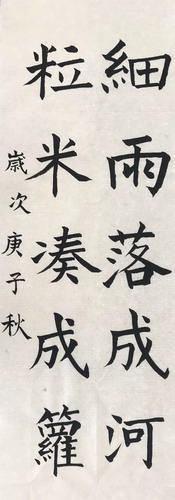 細雨落成河
粒米凑成籮
嵗次庚子秋